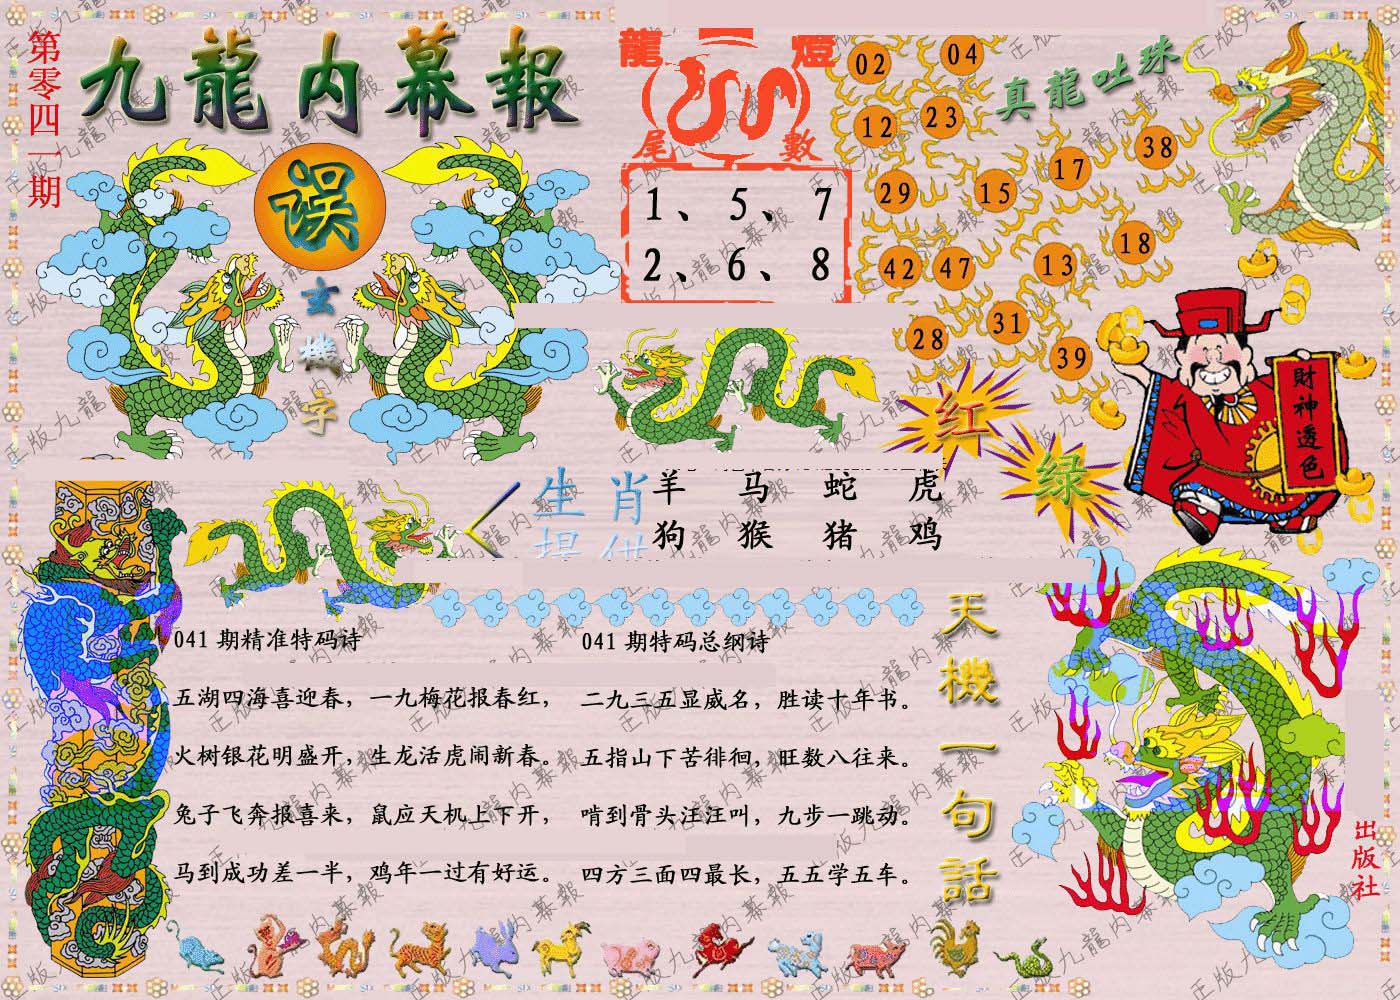 第零四一期
九龍内幕報
误
玄機字
龍燈
尾數
1、5、7
2、6、8
02
04
12
23
真龍吐珠
29
15
17
38
42
47
13
18
28
31
39
红
绿
財神透色
生肖
提供
羊 马 蛇 虎
狗 猴 猪 鸡
041期精准特码诗
五湖四海喜迎春，一九梅花报春红，
火树银花明盛开，生龙活虎闹新春。
兔子飞奔报喜来，鼠应天机上下开，
马到成功差一半，鸡年一过有好运。
041期特码总纲诗
二九三五显威名，胜读十年书。
五指山下苦徘徊，旺数八往来。
啃到骨头汪汪叫，九步一跳动。
四方三面四最长，五五学五车。
天機一句話
出版社
正版九龍内幕報